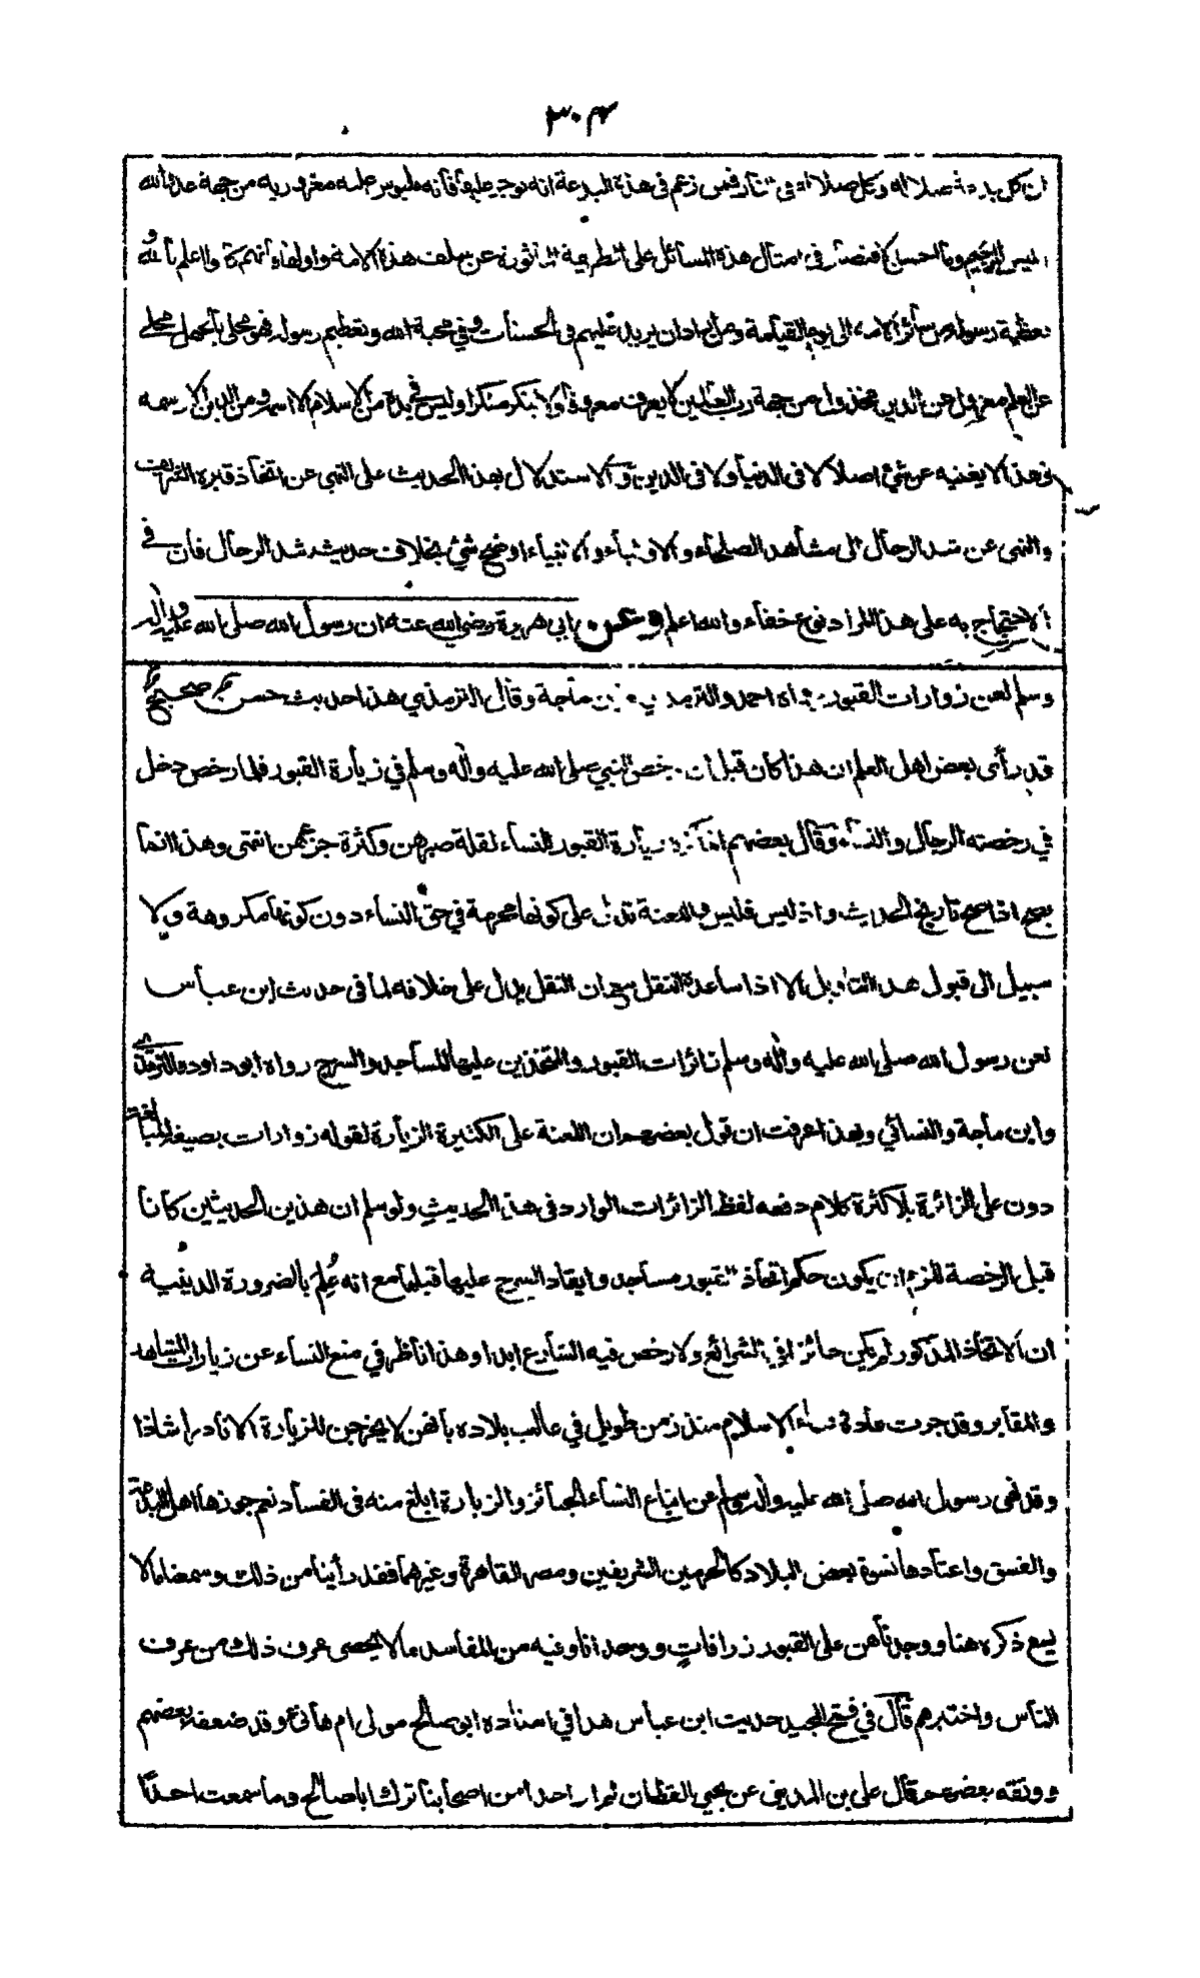 ٣٠٤
ان كل بدعة ضلالة وكل ضلالة فى النار فمن زعم فى هذه البدعة انه يوجر عليها فانه ملبوس عليه مغرور به من جهة عدو الله
فى امثال هذه المسائل على الطريقة الماثورة عن سلف هذه الامة و اعلم بالله
وعظمة رسوله من سائر الامة الى يوم القيامة ومن اراد ان يزيد عليهم فى الحسنات وفي محبة الله وتعظيم رسوله فهو محلى بالجهل مخلى
عن العلم معزول عن الدين مخذول من جهة رب العٰلمين لا يعرف معروفا ولا ينكر منكرا وليس فى يده من الاسلام الا اسمه ومن الدين الا رسمه
وهذا لا يغنيه عن شئ اصلا لا فى الدنيا ولا فى الدين والاستدلال بهذا الحديث على النهى عن اتخاذ قبره الشريف
والنهى عن شد الرحال الى مشاهد الصلحاء والاولياء والانبياء اوضح شئ بخلاف حديث شد الرحال فان فى
الاحتجاج به على هذا المراد نوع خفاء والله اعلم وعن ابي هريرة رضي الله عنه ان رسول الله صلى الله عليه واله
وسلم لعن زوارات القبور رواه احمد والترمذي وابن ماجة وقال الترمذي هذا حديث حسن صحيح
قد رأى بعض اهل العلم ان هذا كان قبل ان يرخص النبي صلى الله عليه واله وسلم في زيارة القبور فلما رخص دخل
في رخصته الرجال والنساء وقال بعضهم انما كره زيارة القبور للنساء لقلة صبرهن وكثرة جزعهن انتهى وهذا انما
يصح اذا صح تاريخ الحديث واذ ليس فليس واللعنة تدل على كونها محرمة في حق النساء دون كونها مكروهة ولا
سبيل الى قبول هذا التاويل الا اذا ساعده النقل مع ان النقل يدل على خلافه لما فى حديث ابن عباس
لعن رسول الله صلى الله عليه واله وسلم زائرات القبور والمتخذين عليها المساجد والسرج رواه ابو داود والترمذي
وابن ماجة والنسائي وبهذا عرفت ان قول بعضهم ان اللعنة على الكثيرة الزيارة لقوله زوارات بصيغة المبالغة
دون على الزائرة بلا كثرة كلام دفعه لفظ الزائرات الوارد فى هذا الحديث ولو سلم ان هذين الحديثين كانا
قبل الرخصة للزم ان يكون حكم اتخاذ القبور مساجد وايقاد السرج عليها قبلها مع انه عُلم بالضرورة الدينية
ان الاتخاذ المذكور لم يكن جائزا فى الشرائع ولا رخص فيه الشارع ابدا وهذا ناظر في منع النساء عن زيارات المشاهد
والمقابر وقد جرت عادة نساء الاسلام منذ زمن طويل في غالب بلاده بانهن لا يخرجن للزيارة الا نادرا شاذا
وقد نهى رسول الله صلى الله عليه واله وسلم عن اتباع النساء الجنائز والزيارة ابلغ منه فى الفساد نعم جوزها اهل البدعة
والفسق واعتادها نسوة بعض البلاد كالحرمين الشريفين ومصر القاهرة وغيرهما فقد رأينا من ذلك وسمعنا ما لا
يسع ذكره هنا ووجدناهن على القبور زرافات ووحدانا وفيه من المفاسد ما لا يحصى عرف ذلك من عرف
الناس واختبرهم قال في فتح المجيد حديث ابن عباس هذا في اسناده ابو صالح مولى ام هانئ وقد ضعفه بعضهم
ووثقه بعضهم قال على بن المدينى عن يحيى القطان لم ار احدا من اصحابنا ترك ابا صالح وما سمعت احدا